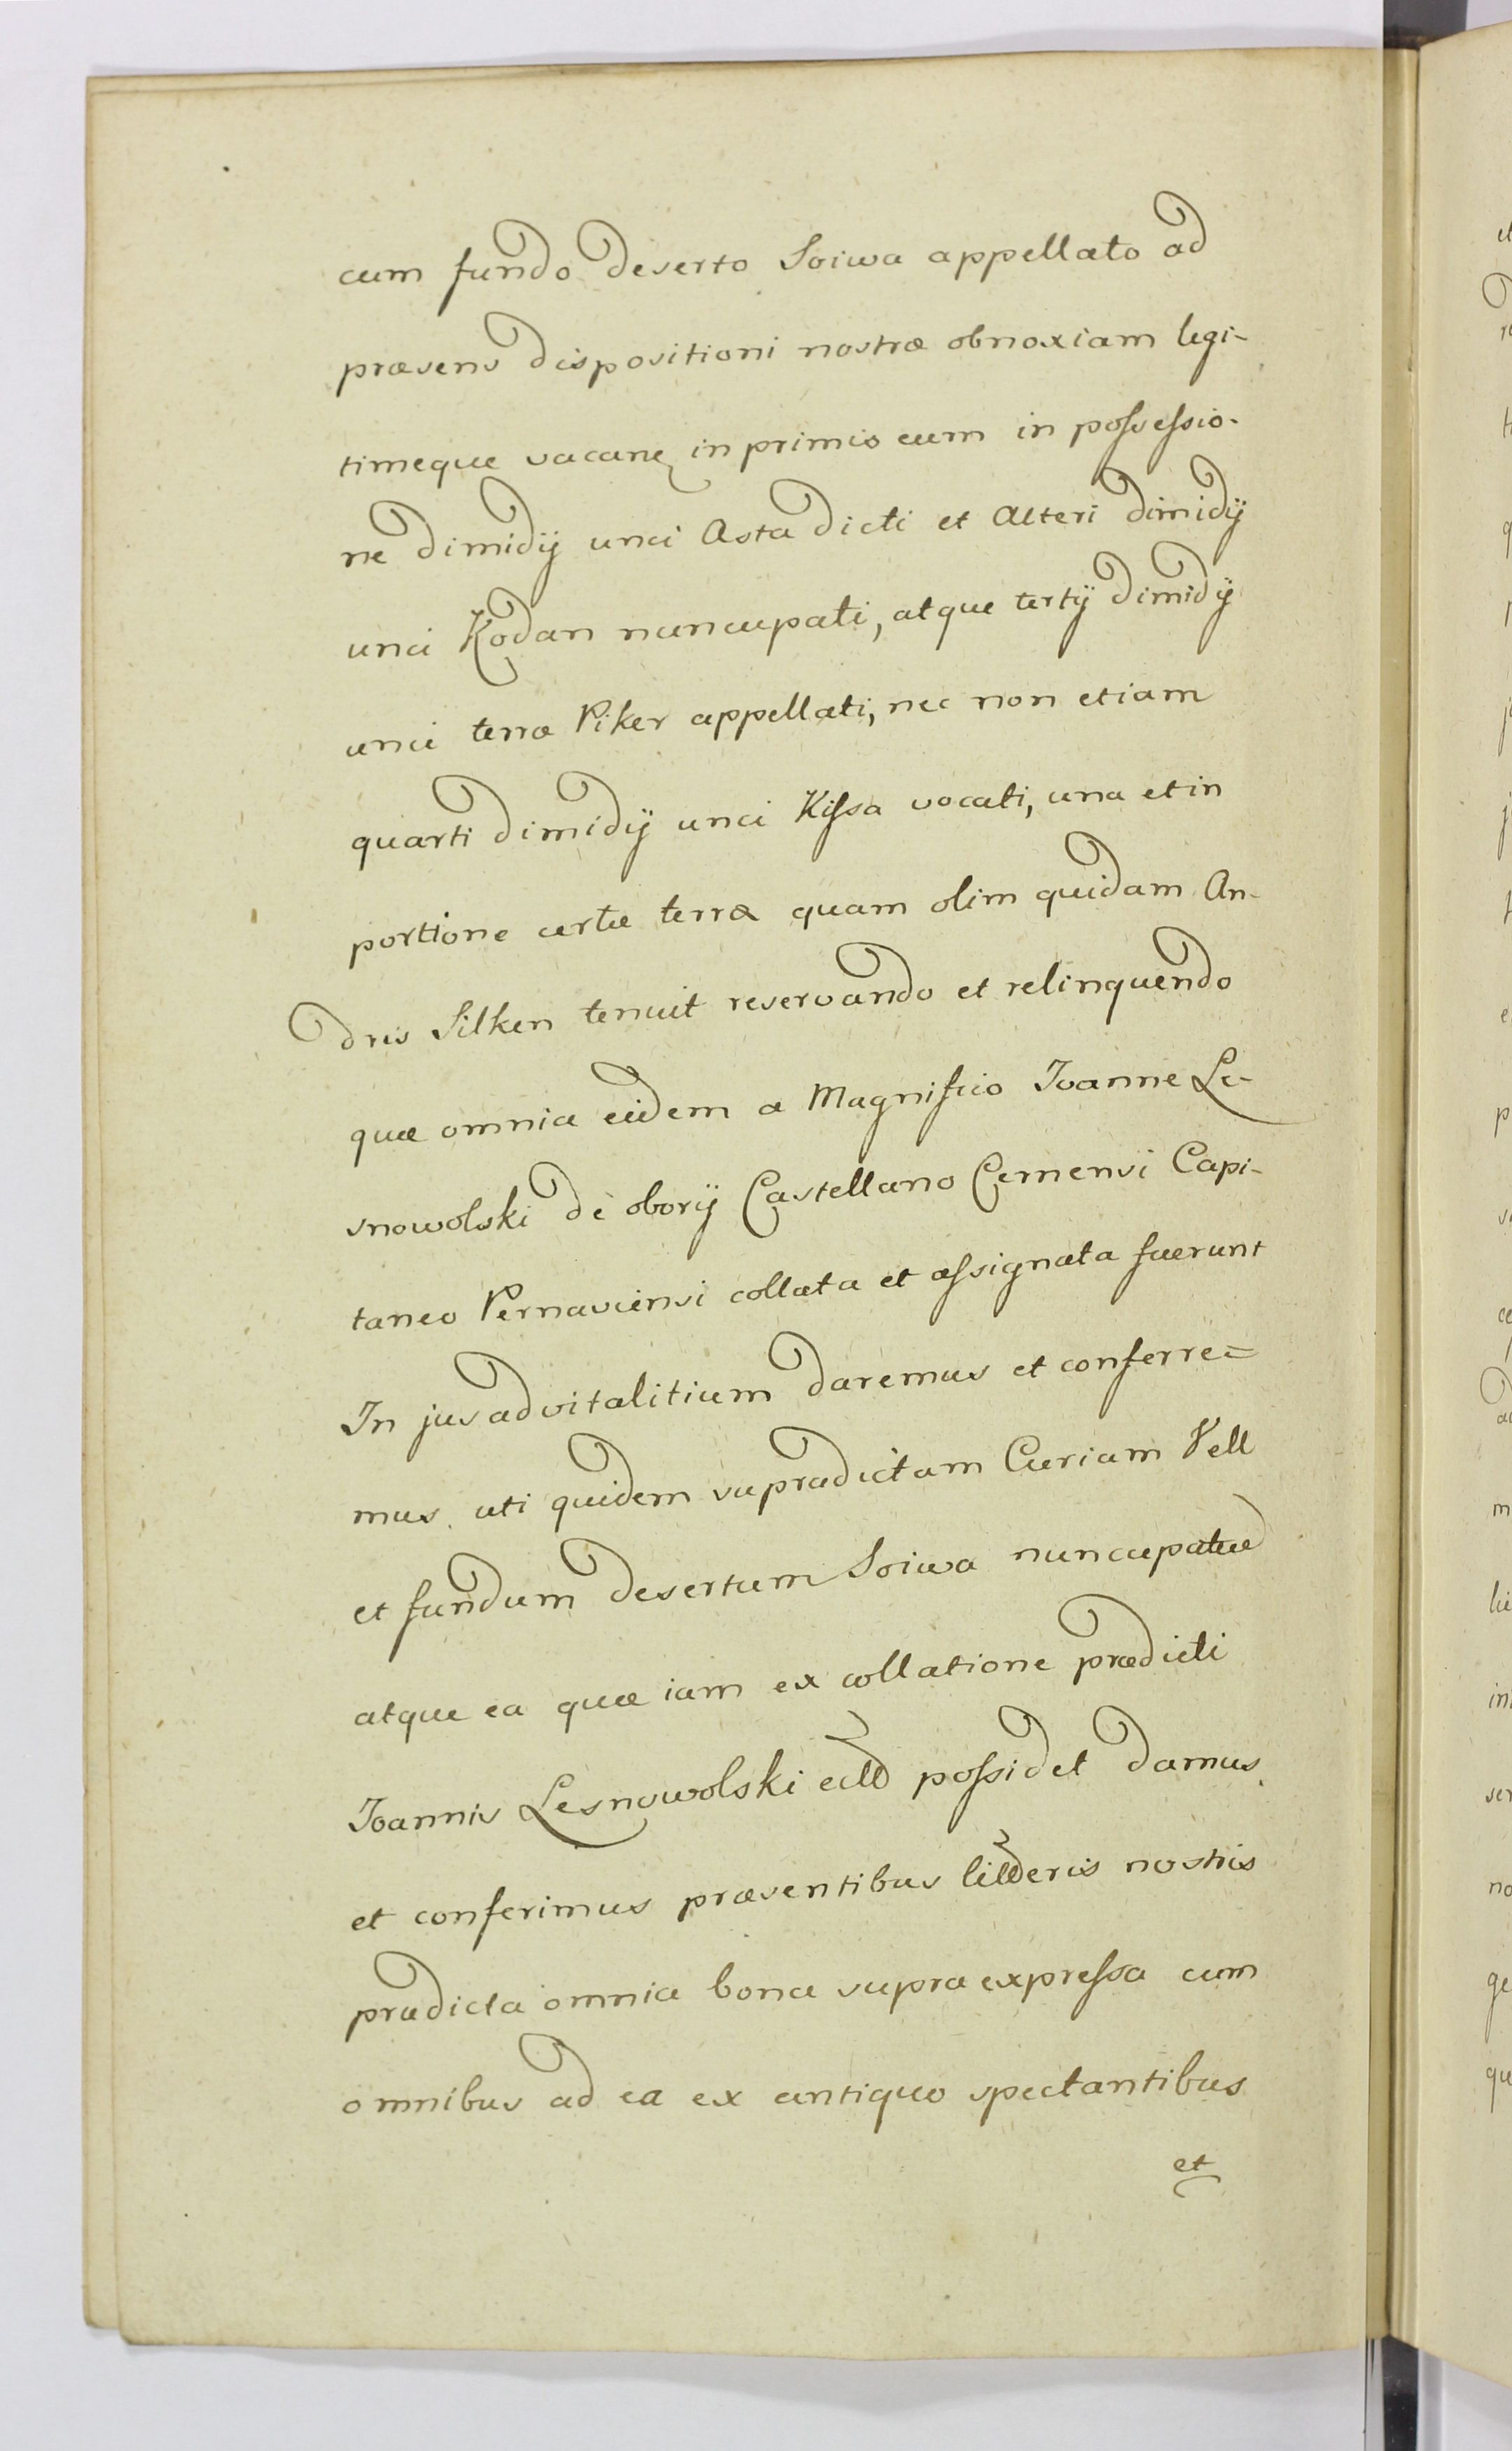 cum fundo deserto Soiwa appellato ad
præsens dispositioni nostræ obnoxiam legi-
timeque vacanę in primis eum in possessio-
ne dimidij unci Asta dicti et Alteri dimidij
unci Kodan nuncupati, atque tertij dimidij
unci terræ Piker appellati, nec non etiam
quarti dimidij unci Kissa vocati, una et in
portione certæ terræ quam olim quidam An-
dris Silken tenuit reservando et relinquendo
quæ omnia eidem a Magnifico Joanne Le-
snowolski de obory Castellano Cernensi Capi-
taneo Pernaviensi collata et assignata fuerunt
In jus advitalitium daremus et conferre=
mus. uti quidem supradictam Curiam Vell
et fundum desertum Soiwa nuncupatue
atque ea quæ iam ex collatione prædicti
Joannis Lesnowolski possidet damus
et conferimus præsentibus nostris
prædicta omnia bona supra expressa cum
omnibus ad ea ex antiquo spectantibus
et